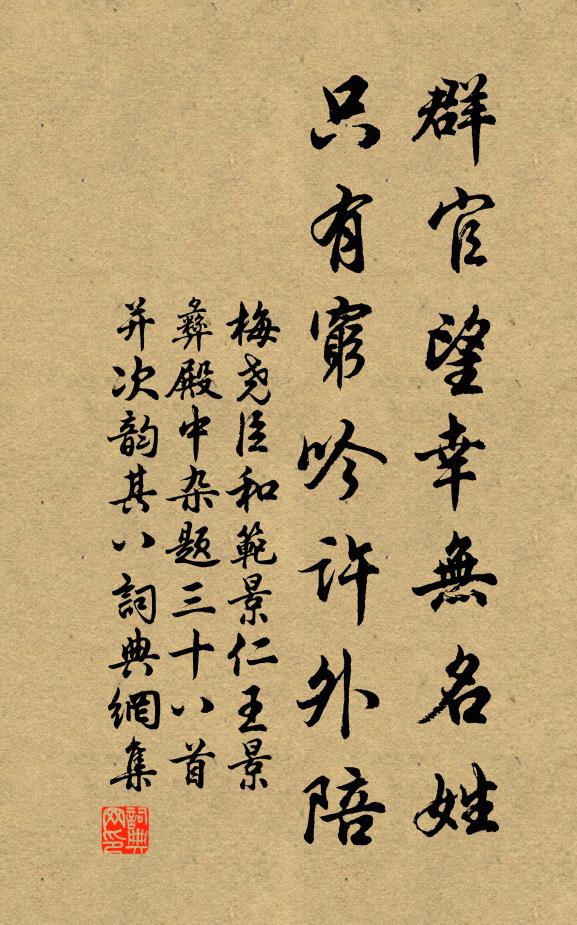 群官望幸無名姓
只有窮吟許外陪
梅尧臣和範景仁王景
彝殿中杂题三十八首
并次韵其八詞典網集
詞典
网印